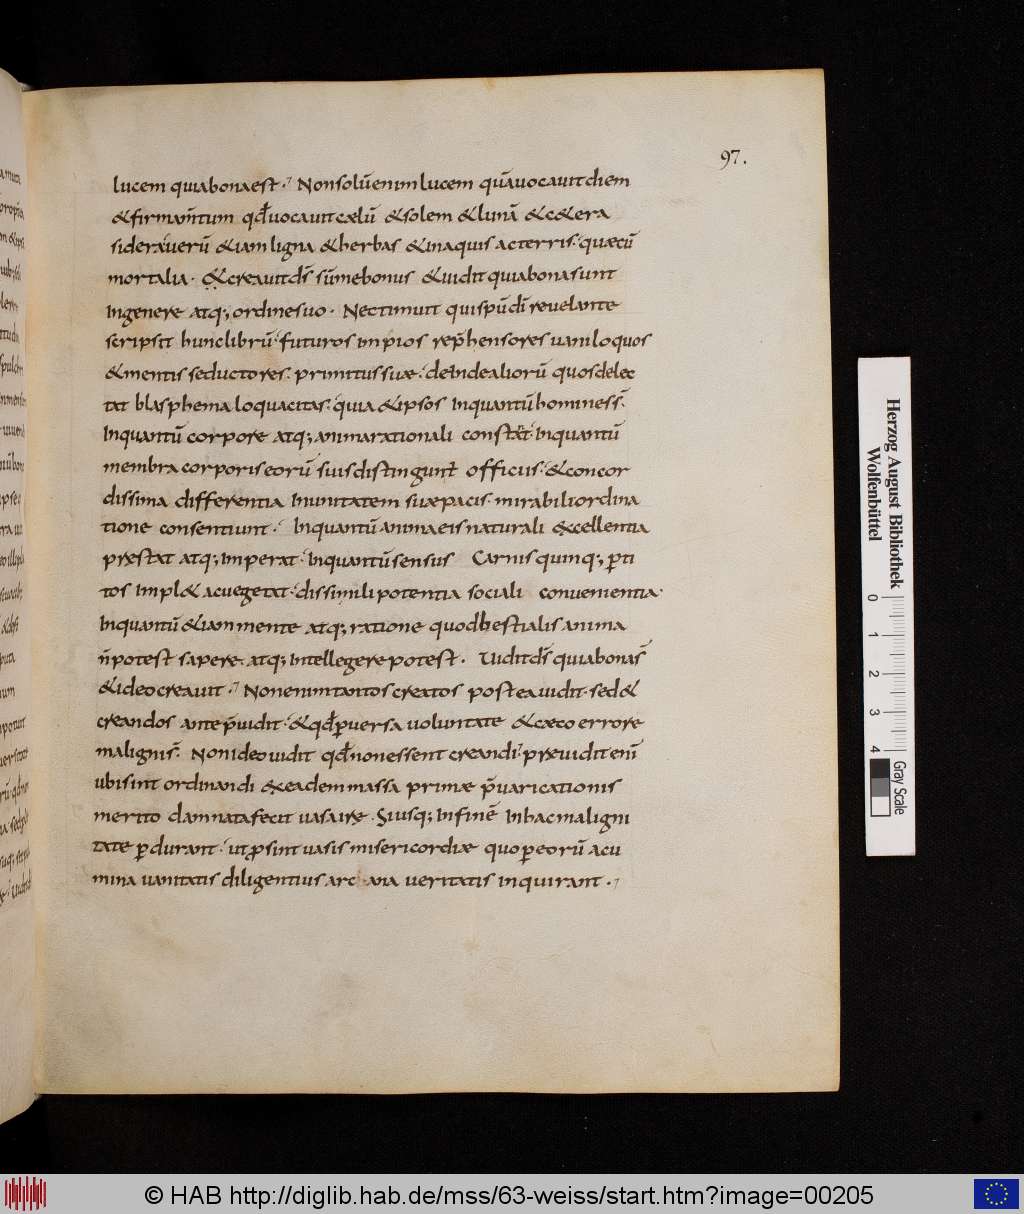 97.
lucem quia bona est. Non solũ enim lucem quã uocauit diem
&firmam̃tum qđ uocauit cælũ &solem &lunã &c&era
sidera uerũ &iam ligna &herbas &in aquis ac terris quæcũ
mortalia. &creauit d̃s sũme bonus &uidit quia bona sunt
In genere atq; ordine suo. Nec timuit qui sp̃u dĩ reuelante
scripsit hunc librũ futuros impios rep̃hensores uaniloquos
&mentis seductores primitus suæ deinde aliorũ quos delec
tat blasphema loquacitas quia &ipsos Inquantũ homines s̃.
Inquantũ corpore atq; anima rationali constat̃ Inquantũ
membra corporis eorũ suis distingunt̃ officiis &concor
dissima differentia In unitatem suæ pacis mirabili ordina
tione consentiunt. Inquantũ anima eis naturali excellentia
præstat atq; imperat Inquantũ sensus Carnis quinq; ꝑti
tos impl& ac uegetat dissimili potentia sociali conuenientia.
Inquantũ &iam mente atq; ratione quod bestialis anima
ñ potest sapere atq; Intellegere potest. Uidit d̃s quia bona s̃
&ideo creauit. Non enim tantos creatos postea uidit sed &
creandos ante p̃uidit &qđ ꝑuersa uoluntate &cæco errore
maligni s̃. Non ideo uidit qđ non essent creandi præuidit enĩ
ubi sint ordinandi &ea dem massa primæ p̃uaricationis
merito damnata fecit uasa iræ. Siusq; in finẽ In hac maligni
tate ꝑdurant ut ꝓsint uasis misericordiæ quo ꝑ eorũ acu
mina uanitatis diligentius arc ana ueritatis inquirant.
Herzog August Bibliothek
Wolfenbüttel
0 1 2 3 4 Gray Scale
© HAB http://diglib.hab.de/mss/63-weiss/start.htm?image=00205